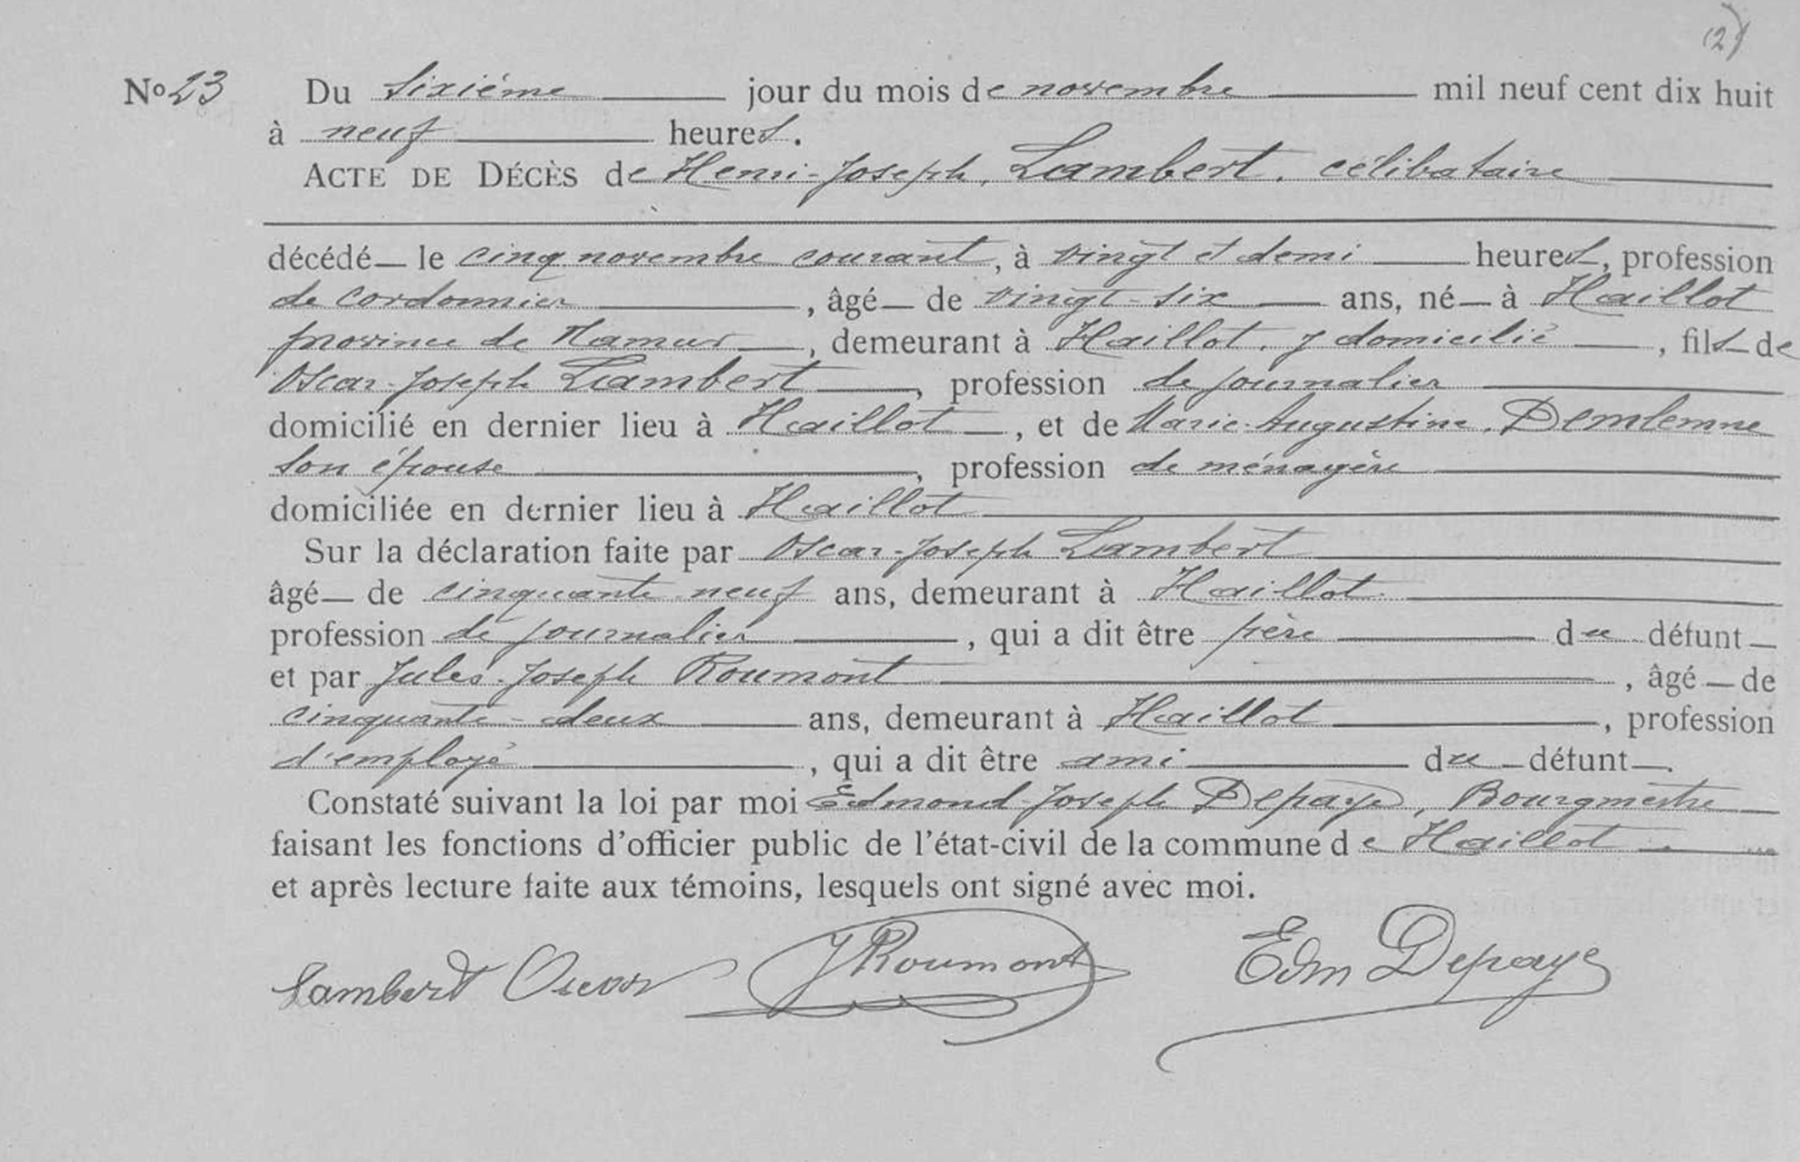 (2)
No 23 Du sixième jour du mois de novembre mil neuf cent dix huit
à neuf heures.
ACTE DE DÉCÈS de Henri-Joseph, Lambert, célibataire
décédé le cinq novembre courant, à vingt et demi heures, profession
de cordonnier, âgé de vingt-six ans, né à Haillot
province de Namur, demeurant à Haillot, y domicilié, fils de
Oscar-Joseph Lambert, profession de journalier
domicilié en dernier lieu à Haillot, et de Marie-Augustine,
son épouse, profession de ménagère
domiciliée en dernier lieu à Haillot
Sur la déclaration faite par Oscar-Joseph Lambert
âgé de cinquante neuf ans, demeurant à Haillot
profession de journalier, qui a dit être père du défunt
et par Jules-Joseph Roumont, âgé de
cinquante-deux ans, demeurant à Haillot, profession
d'employé, qui a dit être ami du défunt.
Constaté suivant la loi par moi Edmond-Joseph Depaye, Bourgmestre
faisant les fonctions d'officier public de l'état-civil de la commune de Haillot
et après lecture faite aux témoins, lesquels ont signé avec moi.
Lambert Oscar JRoumont Edm Depaye